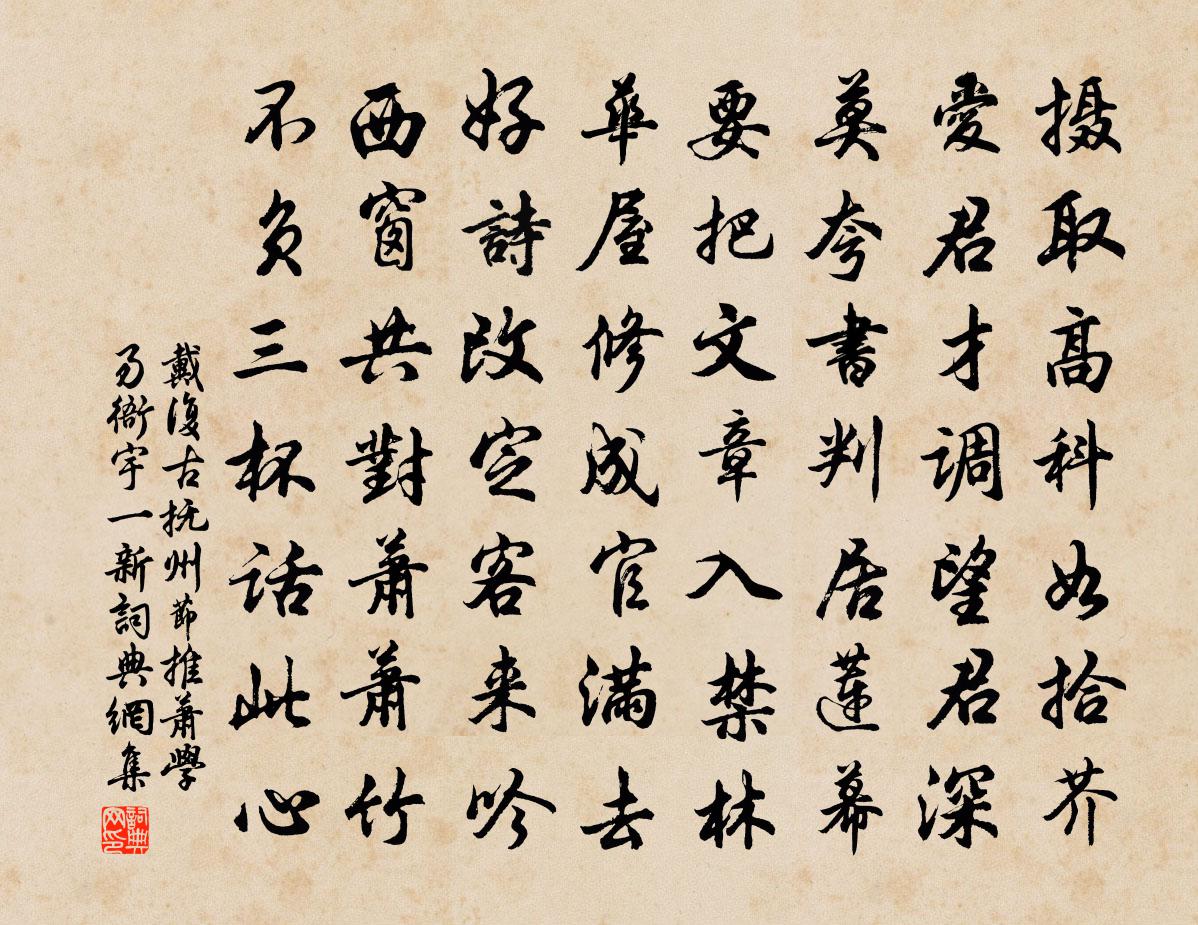 摄取高科如拾芥
愛君才调望君深
莫夸書判居蓮幕
要把文章入禁林
華屋修成官满去
好詩改定客来吟
西窗共對蕭蕭竹
不負三杯話此心
戴復古抚州節推蕭學
易衙宇一新詞典網集
詞典网印